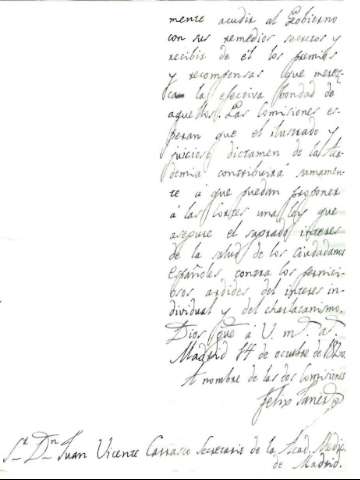 mente acudir al Gobierno
con sus remedios secretos y
recibir de él los premios
y recompensas que merez-
ca la efectiva bondad de
aquellos. Las Comisiones es-
peran que el ilustrado y
juicioso dictamen de la Aca-
demia contribuirá sumamen-
te á que puedan proponer
á las Cortes una ley que
asegure el sagrado interes
de la salud de los ciudadanos
Españoles, contra los pernici-
osos ardides del interes in-
dividual y del charlatanismo.
Dios gue á V. m.s a.s
Madrid 14 de octubre de 1820.
A nombre de las dos Comisiones
Felix Janer
Sr. Dn. Juan Vicente Carrasco Secretario de la Acad. Medic.
de Madrid.